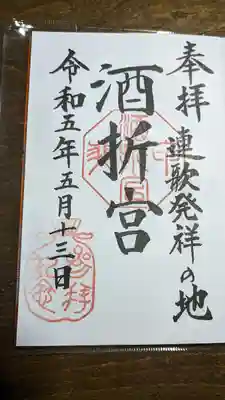 奉拝 連歌発祥の地
酒折宮
令和五年五月十三日